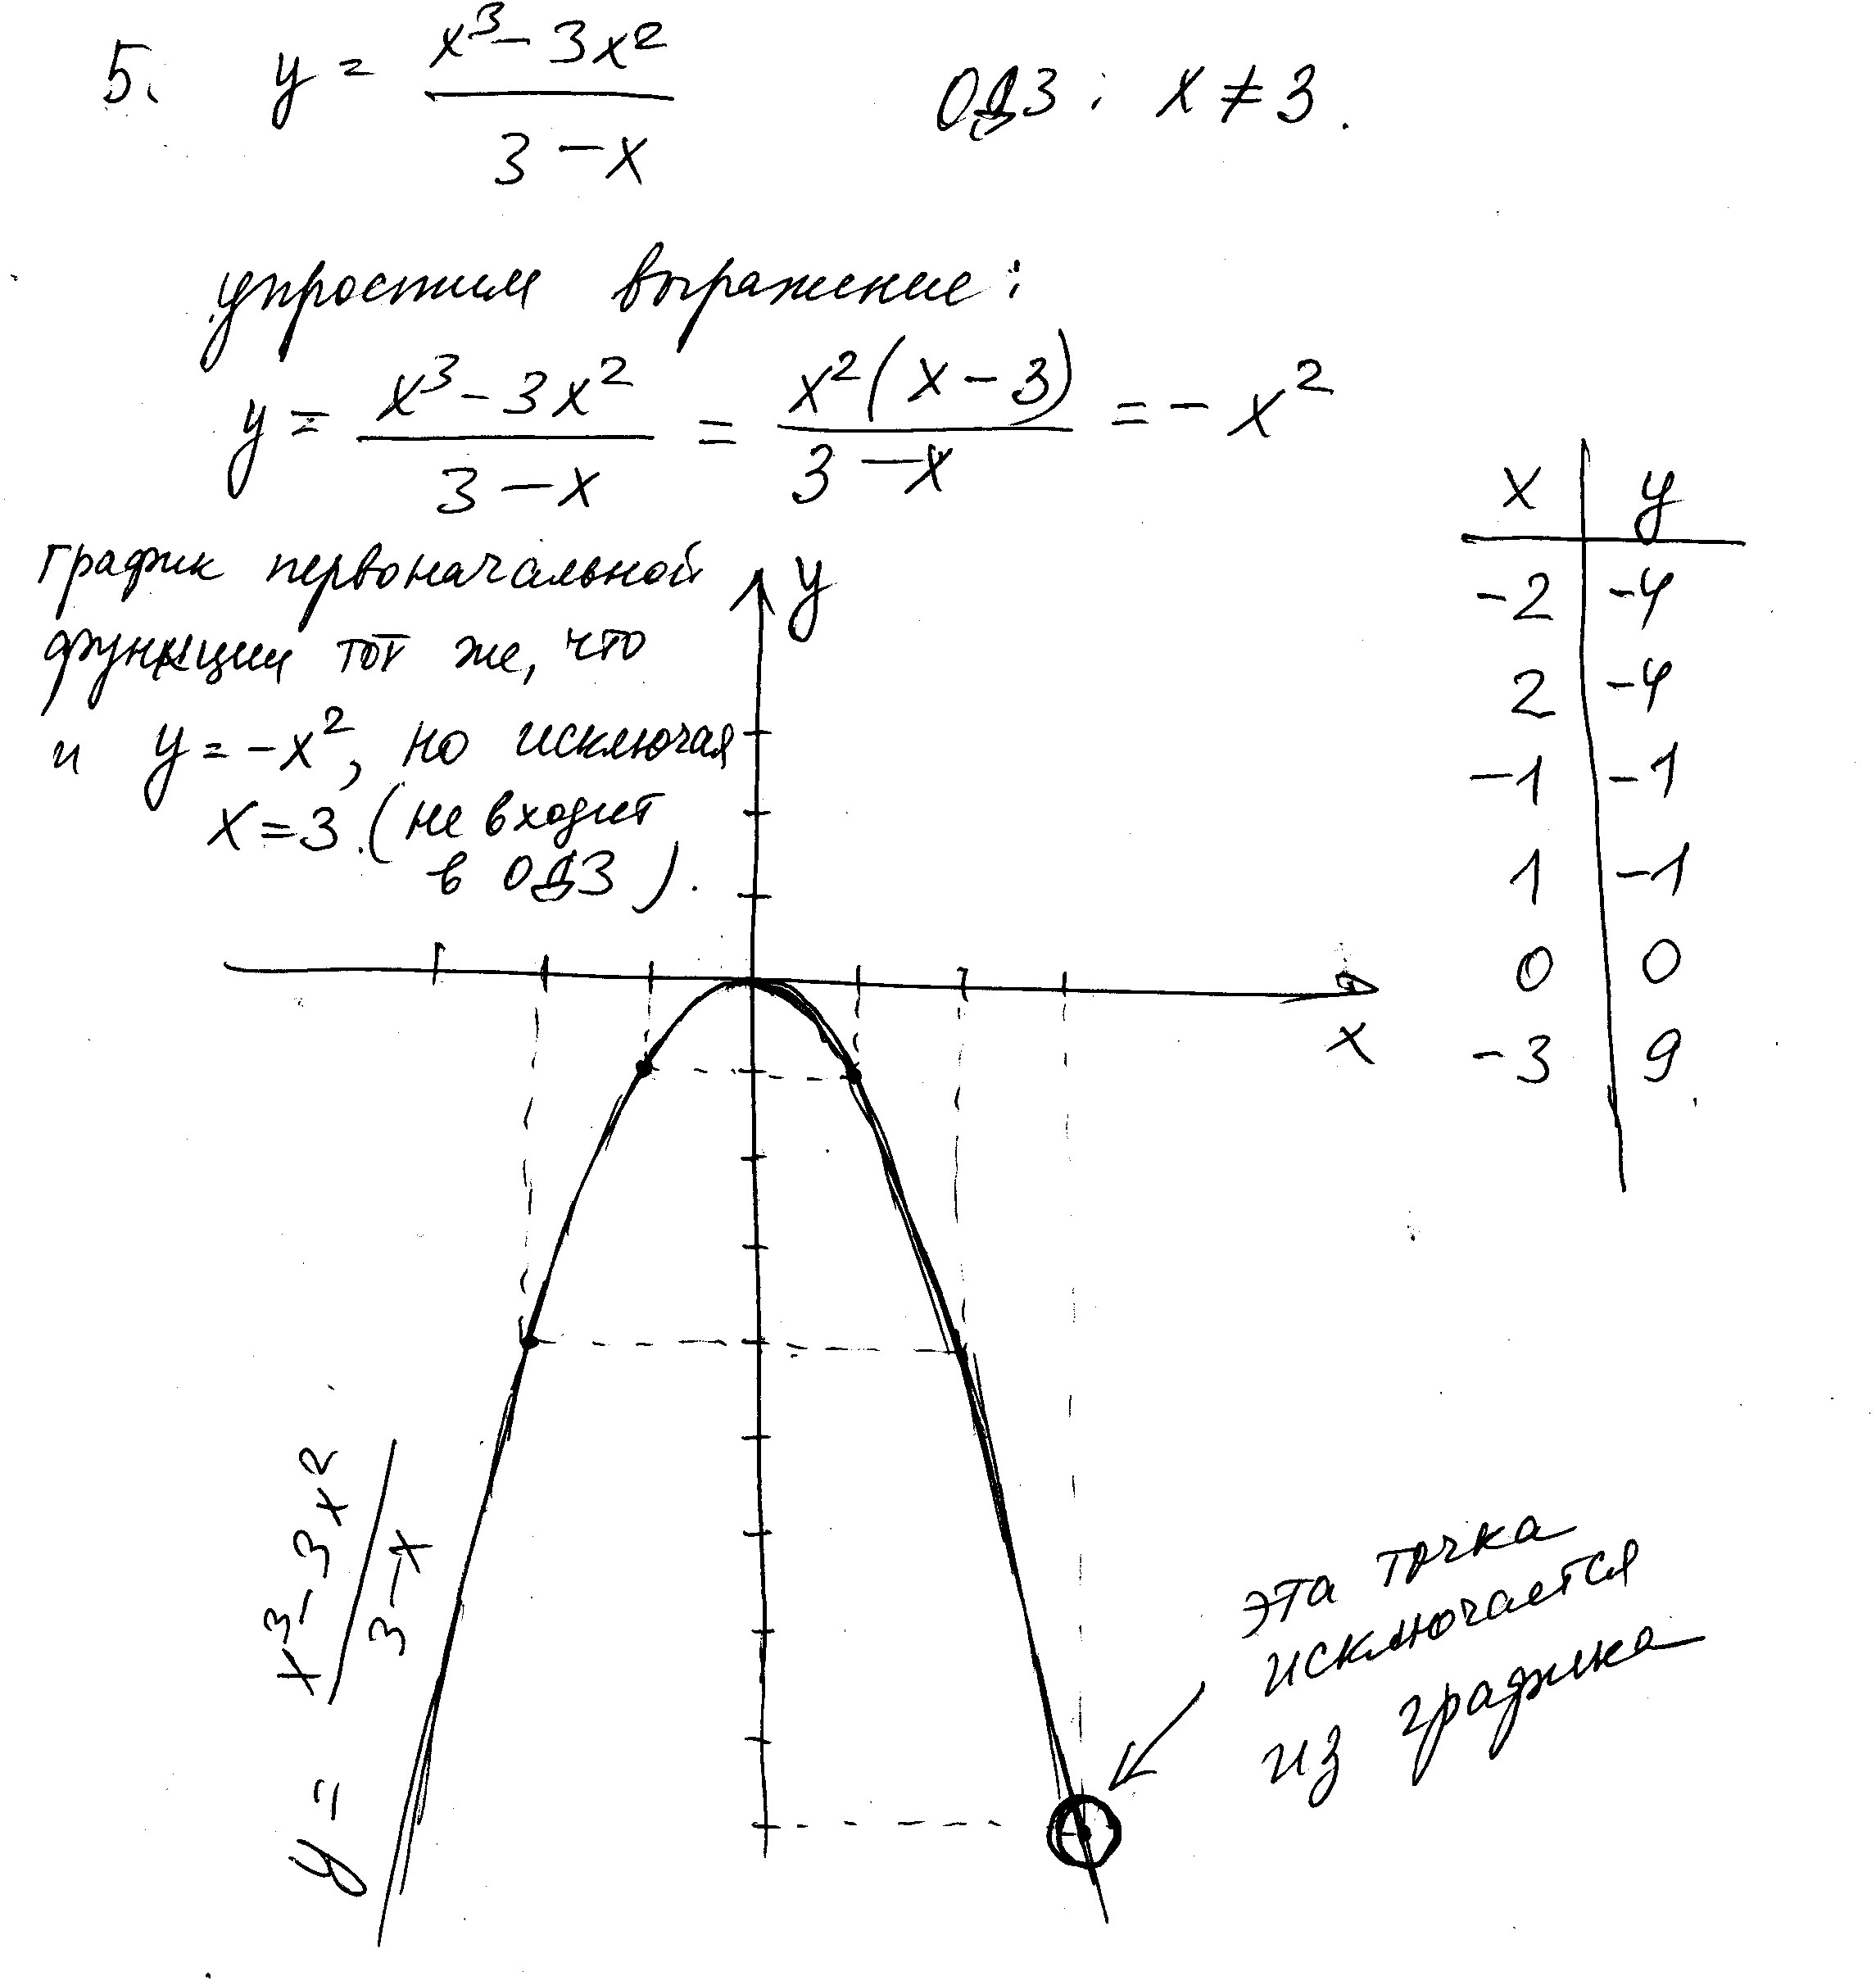 5. y = (x³ - 3x²) / (3 - x)    ОДЗ: x ≠ 3.
упростим выражение:
y = (x³ - 3x²) / (3 - x) = x²(x - 3) / (3 - x) = - x²
график первоначальной
функции тот же, что
и y = -x², но исключая
x = 3. (не входит
в ОДЗ).
y
x
x y
-2 -4
2 -4
-1 -1
1 -1
0 0
-3 9
y = (x³ - 3x²) / (3 - x)
эта точка
исключается
из графика